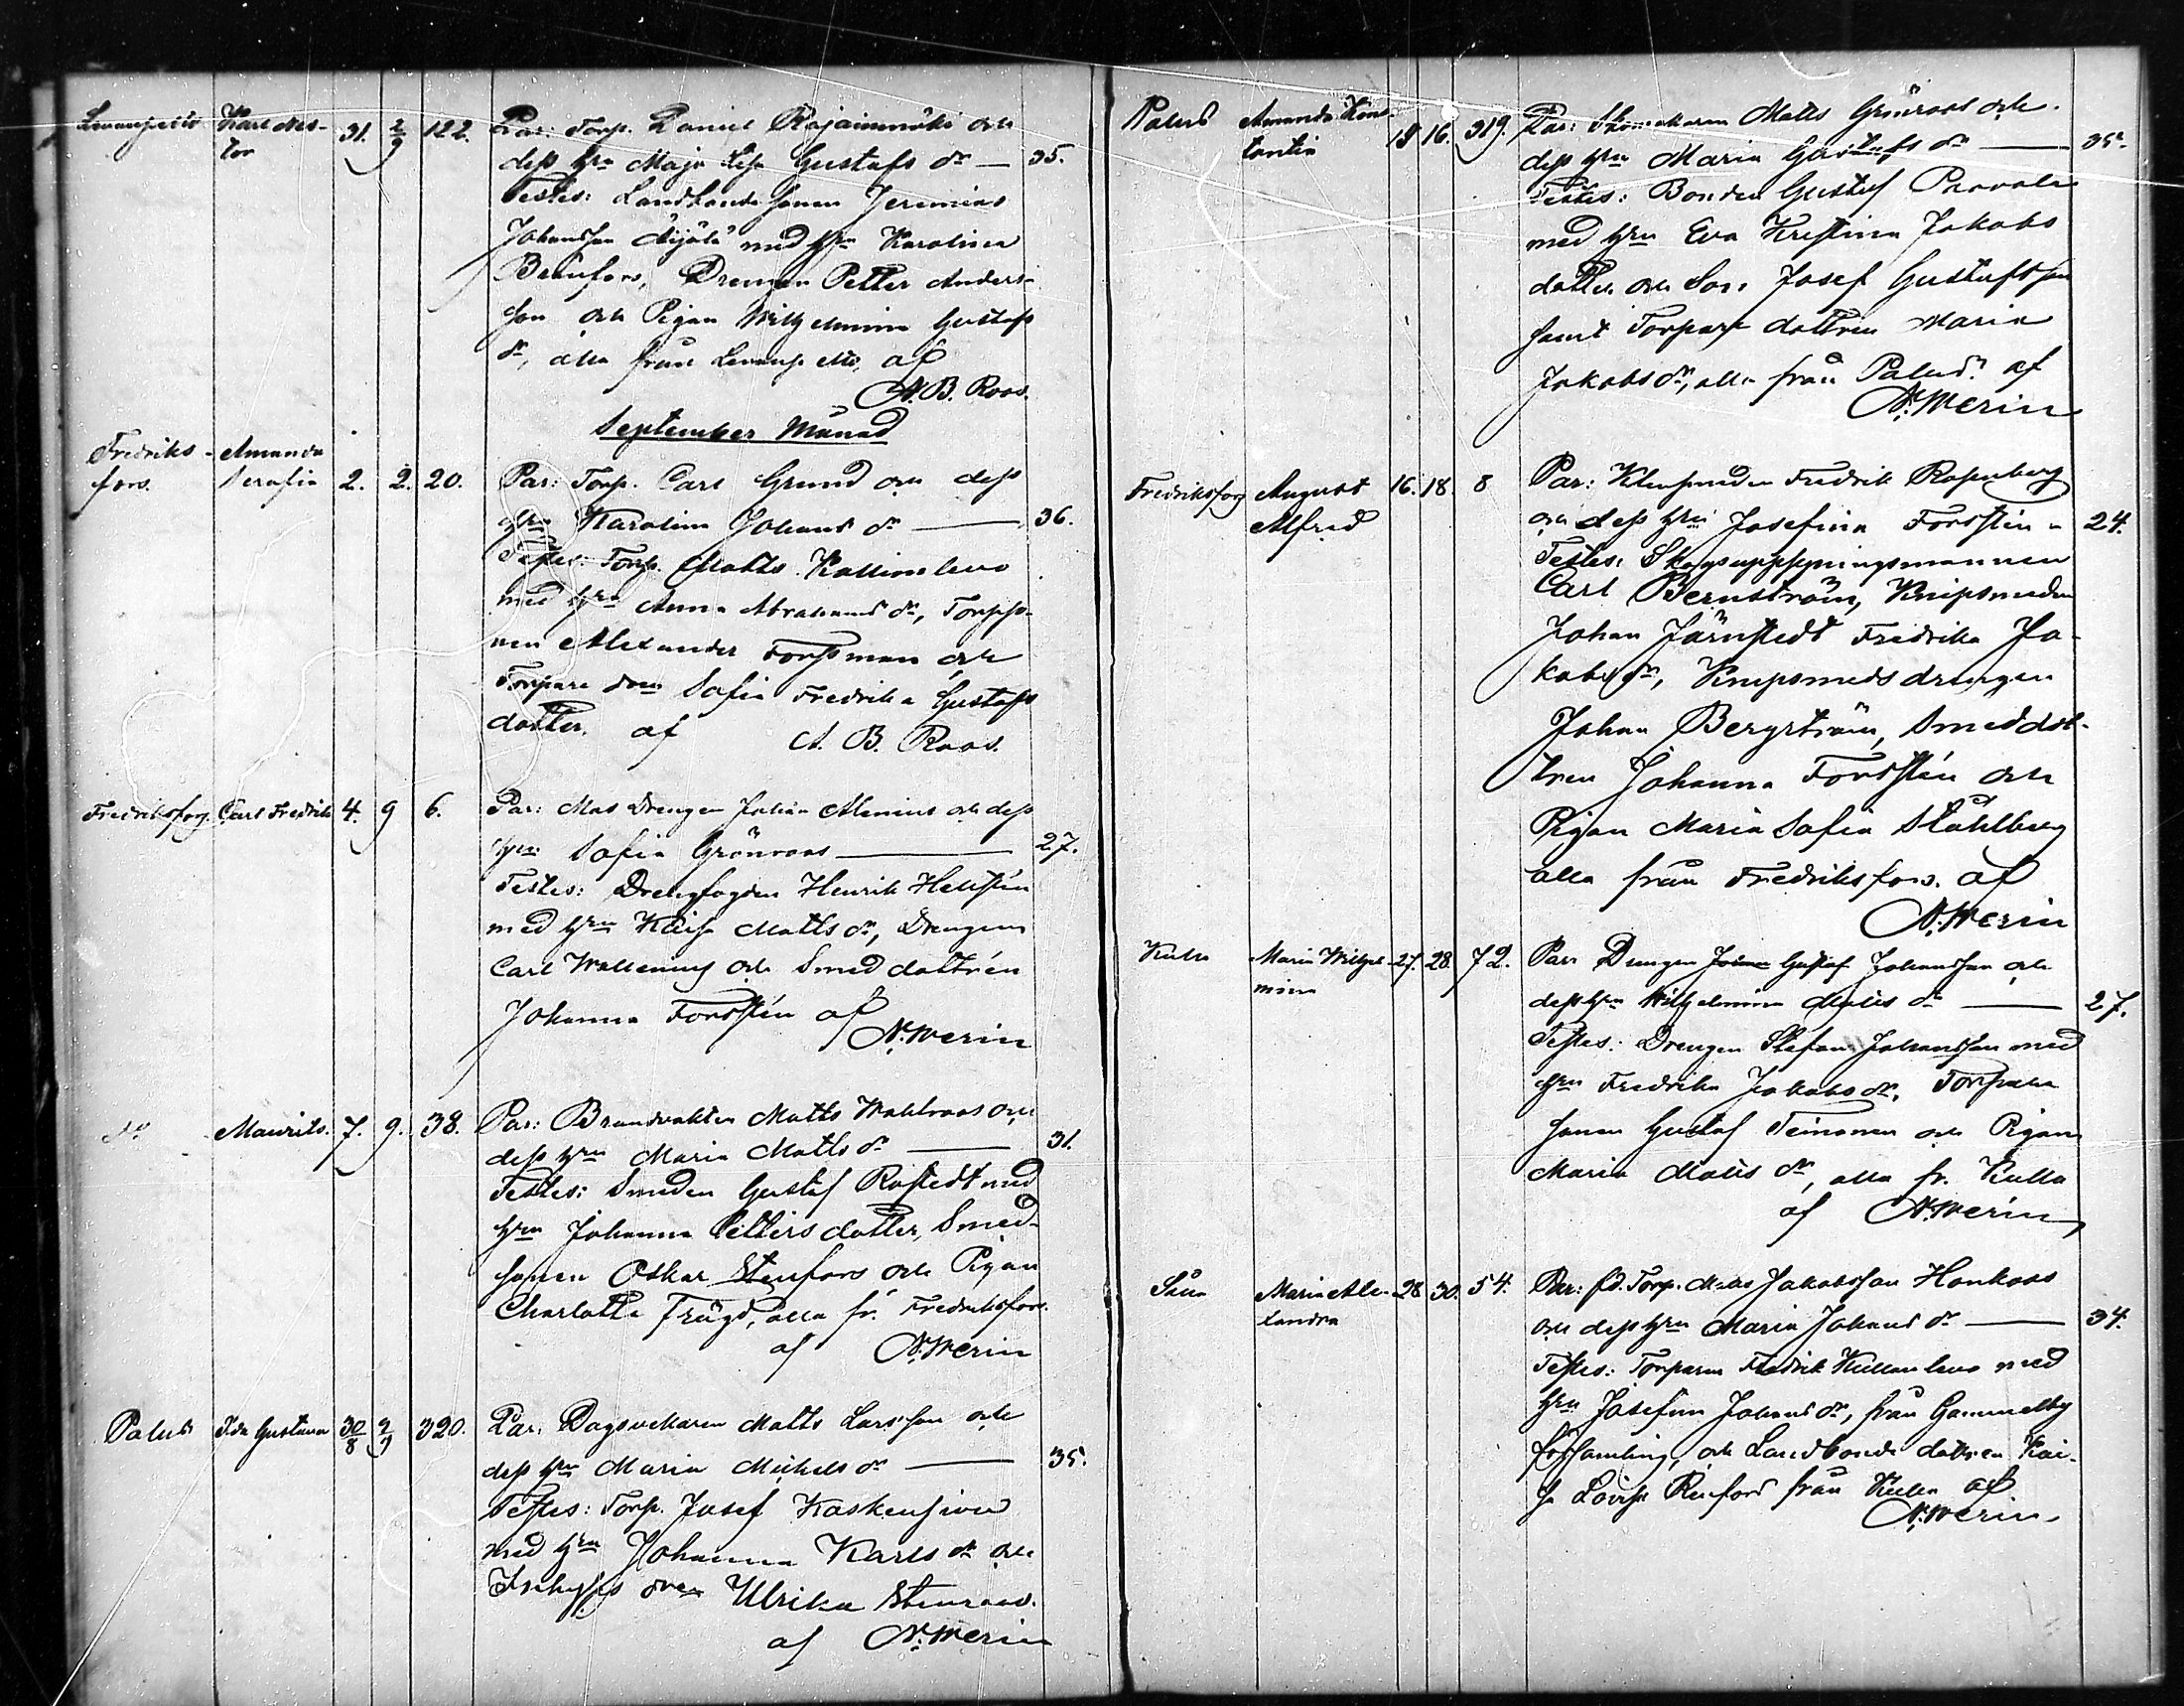 Karl Nes-
tor
31. 2/9 122.
Par: Torp. Daniel Rajainmäki och
dess hru Maja Lisa Gustafs dr — 35.
Testes: Landbonde sonen Jeremias
Johansson Äijälä med hru Karolina
Drengen Petter Anders-
son och Pigan Wilhelmina Gustafs
dr, alla från af
A. B. Roos.
September Månad
Fredriks-
fors.
Amanda
Serafia
2. 2. 20.
Par: Torp. Carl Grund och dess
hru Karolina Johans dr — 36.
Testes: Torp. Matts Kallionlewo
med hru Anna Abrahams dr,
Alexander Forssman och
Torpare Sofia Fredrika Gustafs
dotter. af A. B. Roos.
Fredriksfors Carl Fredrik 4. 9 6.
Par: Mas Drengen Johan Alenius och dess
hru Sofia Grönroos — 27.
Testes: Drengfogden Henrik Hellstén
med hru Kaisa Matts dr, Drengen
Carl Wallenius och Smed dottren
Johanna Forsstén af
N. Merin
do Maurits. 7. 9. 38.
Par: Brandvakten Matts Wahlroos och
dess hru Maria Matts dr — 31.
Testes: Smeden Gustaf Rostedt med
hru Johanna Petters dotter, Smed-
sonen Oskar Stenfors och Pigan
Charlotta Frögd, alla fr. Fredriksfors.
af N. Merin
Palus Ida Gustava 30/8 2/9 320.
Par: Dagsverkaren Matts Larsson och
dess hru Maria Michels dr — 35.
Testes: Torp. Josef Koskensivu
med hru Johanna Karls dr och
Ulrika Stenroos.
af N. Merin
Palus Amanda Kons-
tantia
15 16. 319.
Par: Skomakaren Matts Grönroos och
dess hru Maria Gustafs dr — 35.
Testes: Bonden Gustaf Paavola
med hru Eva Kristina Jakobs
dotter och Son Josef Gustafsson
samt Torpare dottren Maria
Jakobs dr, alla från Palus. af
N. Merin
Fredriksfors August
Alfred
16. 18. 8
Par: Klensmeden Fredrik Rosenberg
och dess hru Josefina Forsstén — 24.
Testes: Skogsuppsyningsmannen
Carl Bernström, Knipsmeden
Johan Järnstedt Fredrika Ja-
kobs dr, Knipsmeds drengen
Johan Bergström, Smeddot-
tren Johanna Forsstén och
Pigan Maria Sofia Ståhlberg
alla från Fredriksfors. af
N. Merin
Kulla Maria Wilhel-
mina
27. 28. 72.
Par: Drengen Gustaf Johansson och
dess hru Wilhelmina Matts dr — 27.
Testes: Drengen Stefan Johansson med
hru Fredrika Jakobs dr, Torpare
sonen Gustaf Teinonen och Pigan
Maria Matts dr, alla fr. Kulla
af N. Merin
Maria Alex-
andra
28 30. 54.
Par: fd. Torp. Matts Jakobsson Honkoos
och dess hru Maria Johans dr — 34.
Testes: Torparen Fredrik Kallionlewo med
hru Josefina Johans dr, från Gammelby
församling, och Landbonde dottren Kai-
sa Lovisa Renfors från Kulla af
N. Merin.